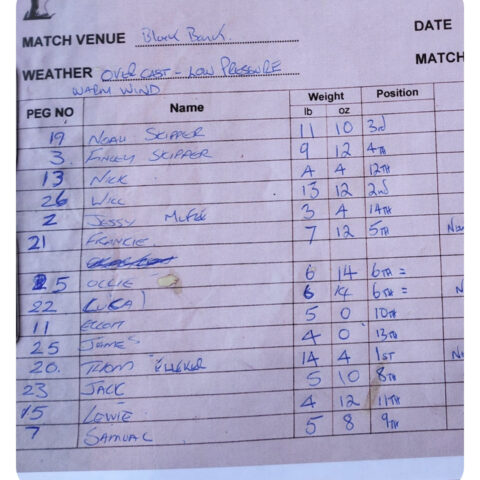 MATCH VENUE Black Bank. DATE
WEATHER OVERCAST - LOW PRESSURE MATCH
WARM WIND
PEG NO Name Weight Position
lb oz
19 NOAH SKIPPER 11 10 3rd
3. FINLEY SKIPPER 9 12 4TH
13 NICK 4 4 12TH
26 WILL 13 12 2nd
2 JESSY 3 4 14TH
21 FRANKIE. 7 12 5TH
5 OLLIE 6 14 6TH =
22 LUKA 6 14 6TH =
11 5 0 10TH
25 JAMES 4 0 13TH
20. 14 4 1ST
23 JACK 5 10 8TH
15 LEWIE 4 12 11TH
7 SAMUAL 5 8 9TH